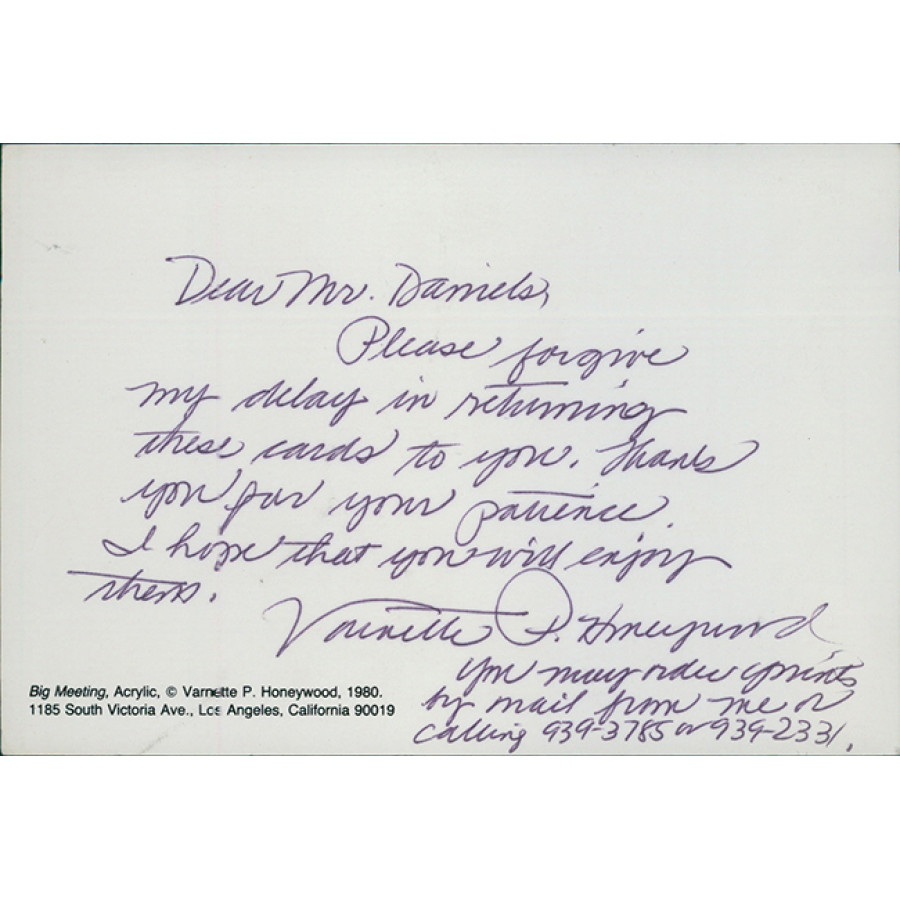 Dear Mr. Daniels,
Please forgive
my delay in returning
these cards to you. Thank
you for your patience.
I hope that you will enjoy
them.
Varnette P. Honeywood
you may order prints
by mail from me or
calling 939-3785 or 939-2331.
Big Meeting, Acrylic, © Varnette P. Honeywood, 1980.
1185 South Victoria Ave., Los Angeles, California 90019